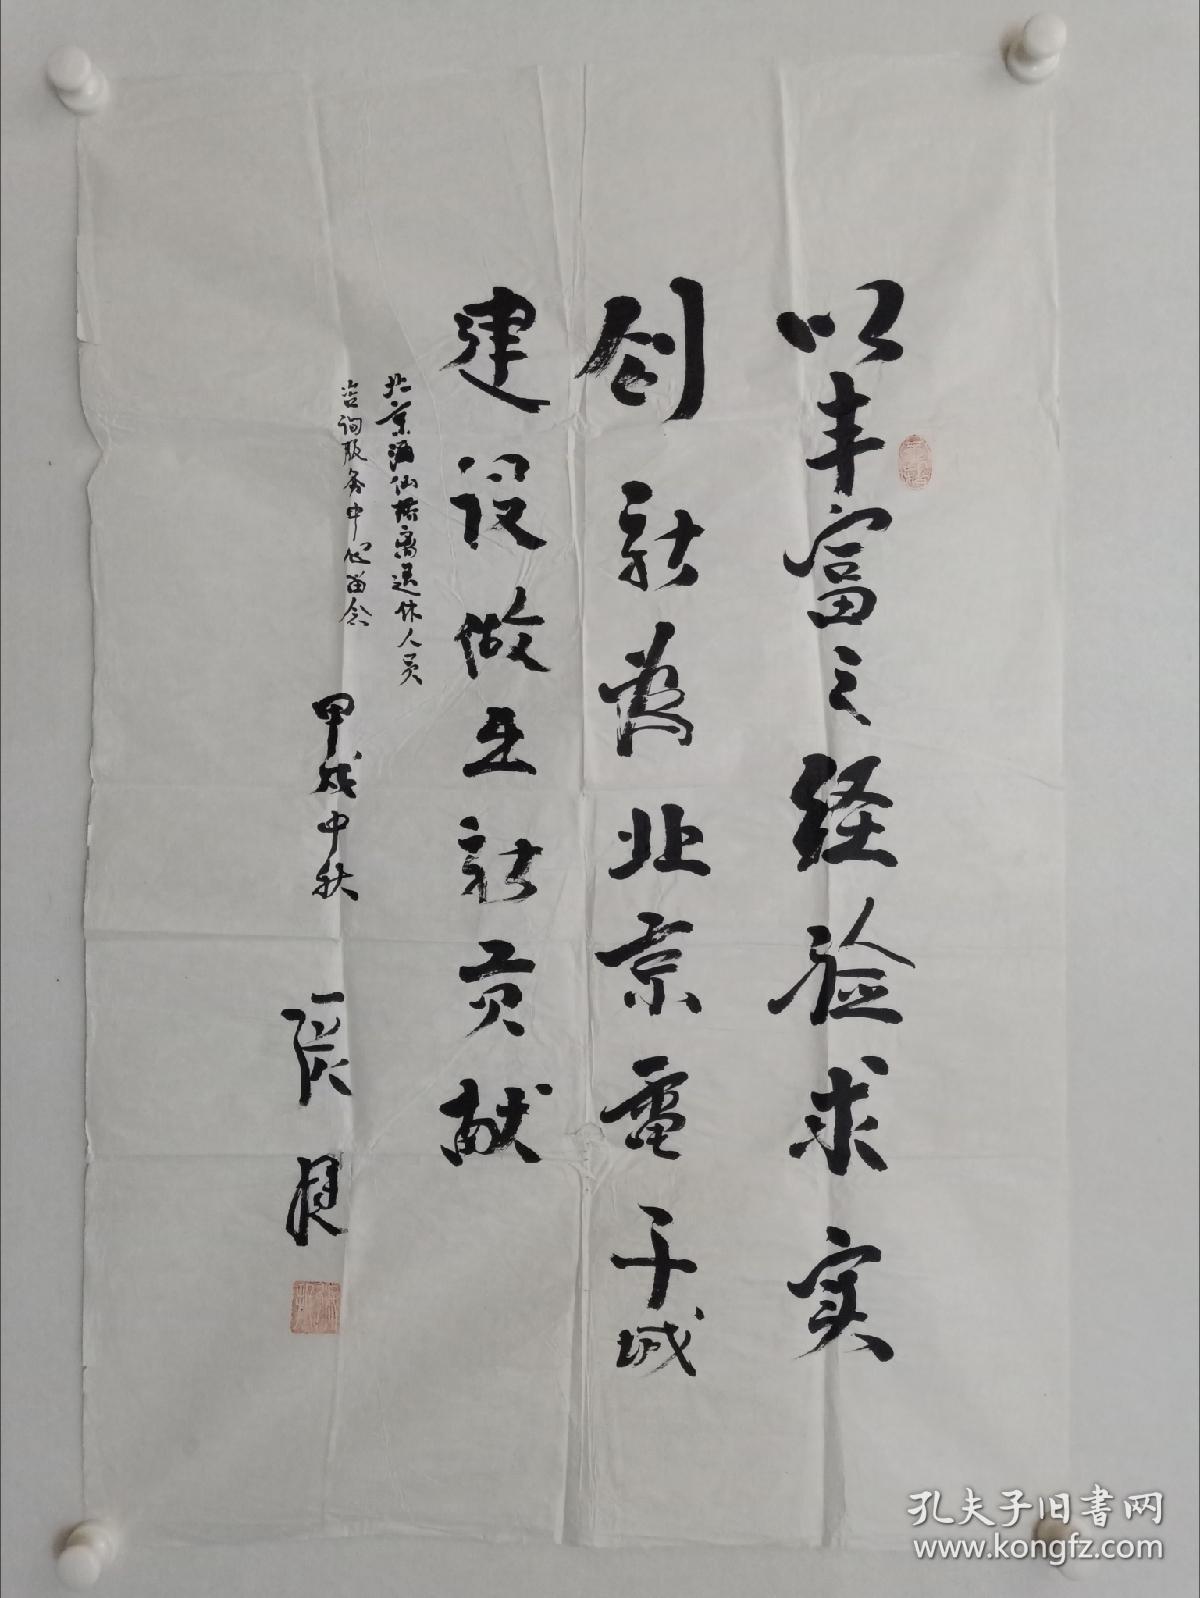 以丰富之经验求实
创新为北京电子城
建设做出新贡献
北京酒仙桥离退休人员
咨询服务中心留念
甲戌中秋
孔夫子旧书网
www.kongfz.com